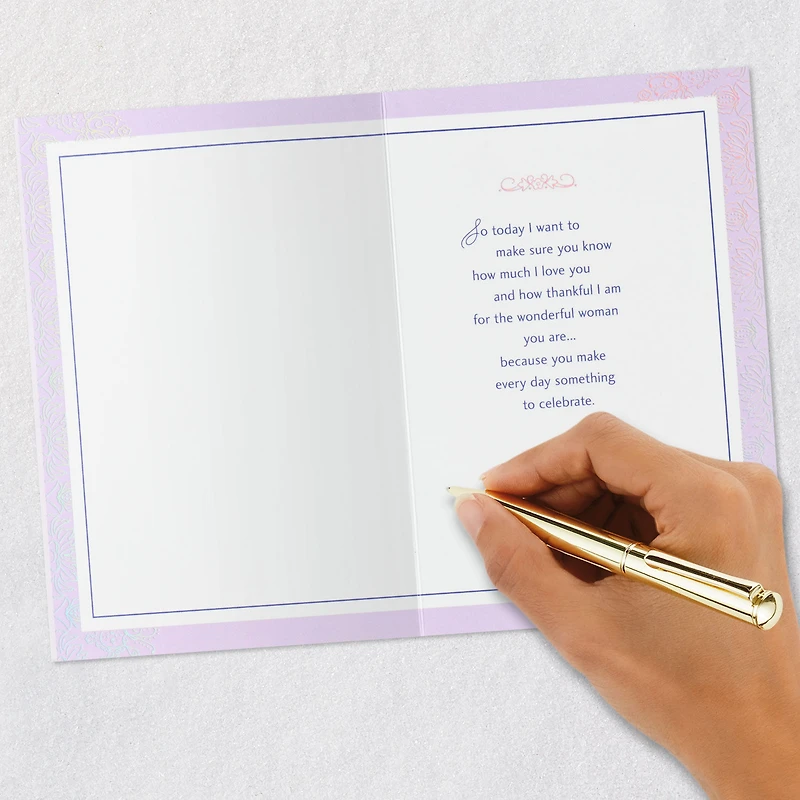 So today I want to
make sure you know
how much I love you
and how thankful I am
for the wonderful woman
you are...
because you make
every day something
to celebrate.